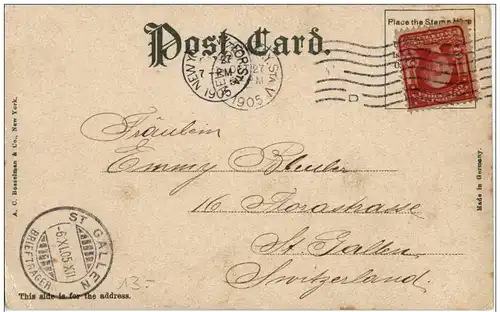 Place the Stamp Here
Post Card.
NEW Y
27
7-PM
1905
STA. V
27
1905
D
Fräulein
Emmy Bleuler
16 Florastrasse
St. Gallen
Switzerland.
A. C. Bosselman & Co., New York.
Made in Germany.
ST. GALLEN
-6.XI.05.XII
BRIEFTRÄGER
13.-
This side is for the address.